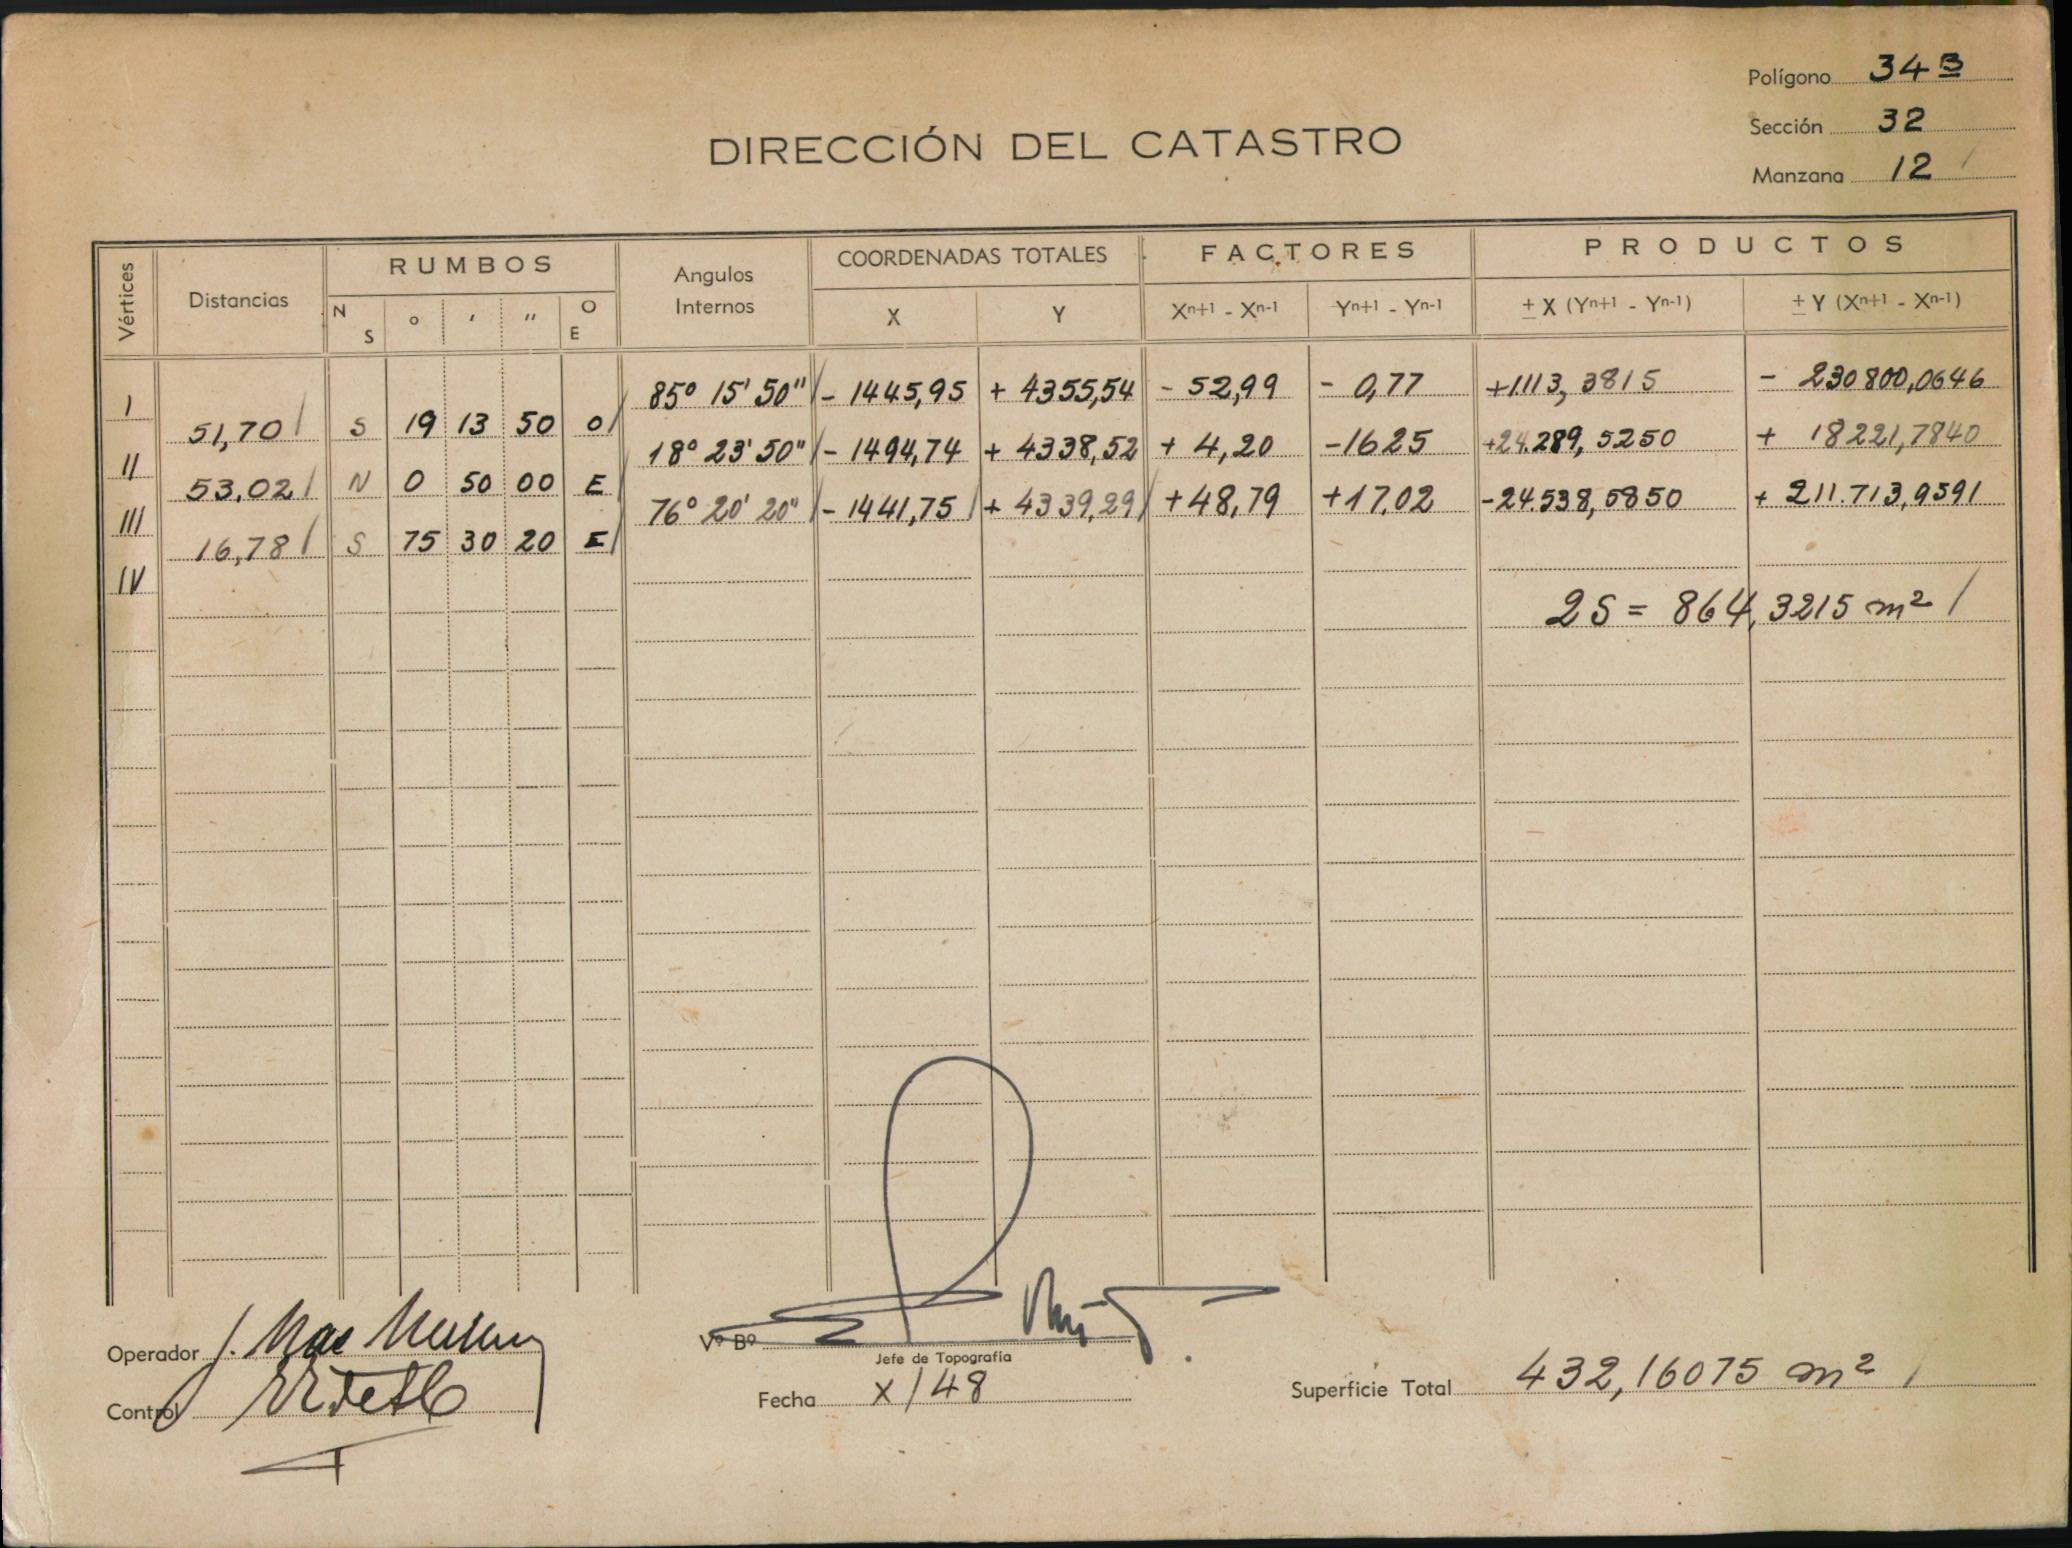 Polígono 34 B
Sección 32
Manzana 12
DIRECCIÓN DEL CATASTRO
Vértices Distancias RUMBOS Angulos Internos COORDENADAS TOTALES FACTORES PRODUCTOS
N S o ' " O E X Y Xn+1 - Xn-1 Yn+1 - Yn-1 ± X (Yn+1 - Yn-1) ± Y (Xn+1 - Xn-1)
I 85° 15' 50" - 1445,95 + 4355,54 - 52,99 - 0,77 +1113,3815 - 230800,0646
51,70 S 19 13 50 O
II 18° 23' 50" - 1494,74 + 4338,52 + 4,20 -1625 +24.289,5250 + 18221,7840
53.02 N 0 50 00 E
III 76° 20' 20" - 1441,75 + 4339,29 +48,79 +17,02 -24.538,5850 + 211.713,9591
16,78 S 75 30 20 E
IV
2S = 864,3215 m²
Operador J. Mac
Vº Bº
Jefe de Topografía
Control
Fecha X/48
Superficie Total 432,16075 m²